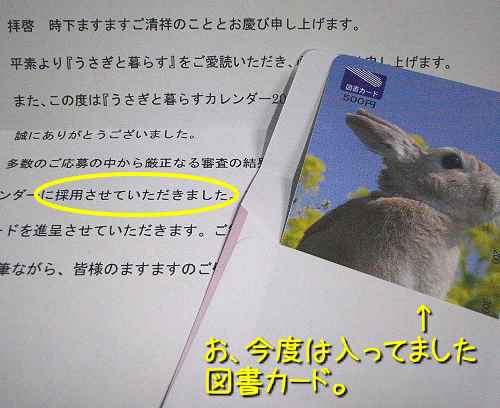 拝啓　時下ますますご清祥のこととお慶び申し上げます。
平素より『うさぎと暮らす』をご愛読いただき、
申し上げます。
また、この度は『うさぎと暮らすカレンダー20
誠にありがとうございました。
多数のご応募の中から厳正なる審査の結果
ンダーに採用させていただきました。
ードを進呈させていただきます。ご
筆ながら、皆様のますますのご
図書カード
500円
↑
お、今度は入ってました
図書カード。